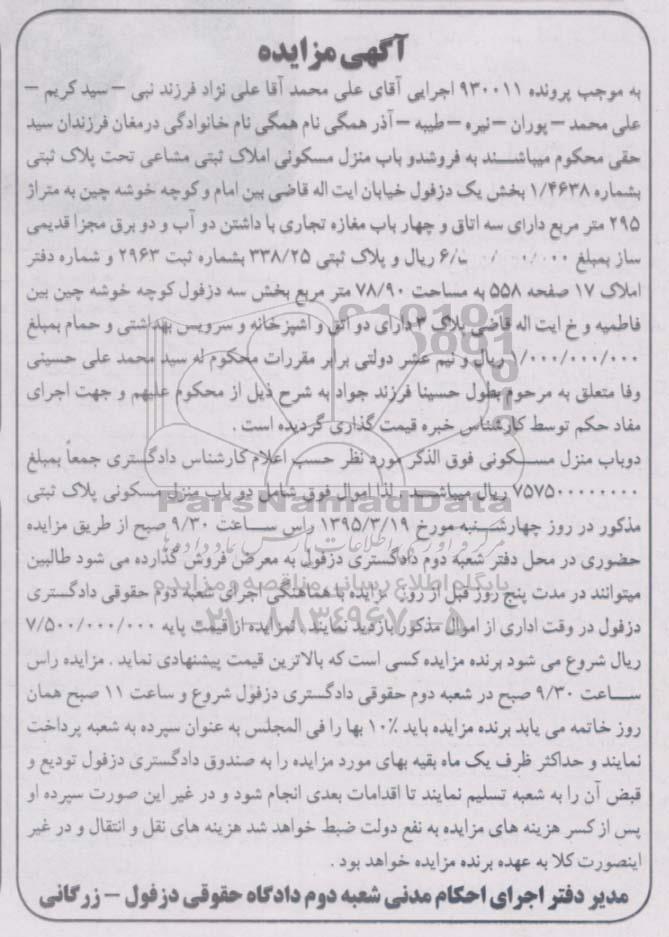 آگهی مزایده
به موجب پرونده ۹۳۰۰۱۱ اجرایی آقای علی محمد آقا علی نژاد فرزند نبی – سید کریم –
علی محمد – پوران – نیره – طیبه – آذر همگی نام همگی نام خانوادگی درمغان فرزندان سید
حقی محکوم میباشند به فروشدو باب منزل مسکونی املاک ثبتی مشاعی تحت پلاک ثبتی
بشماره ۱/۴۶۳۸ بخش یک دزفول خیابان ایت اله قاضی بین امام و کوچه خوشه چین به متراژ
۲۹۵ متر مربع دارای سه اتاق و چهار باب مغازه تجاری با داشتن دو آب و دو برق مجزا قدیمی
ساز بمبلغ ریال و پلاک ثبتی ۳۳۸/۲۵ بشماره ثبت ۲۹۶۳ و شماره دفتر
املاک ۱۷ صفحه ۵۵۸ به مساحت ۷۸/۹۰ متر مربع بخش سه دزفول کوچه خوشه چین بین
فاطمیه و خ ایت اله قاضی پلاک ۳ دارای دو اتق و اشپزخانه و سرویس بهداشتی و حمام بمبلغ
۱/۰۰۰/۰۰۰/۰۰۰ ریال و نیم عشر دولتی برابر مقررات محکوم له سید محمد علی حسینی
وفا متعلق به مرحوم بطول حسینا فرزند جواد به شرح ذیل از محکوم علیهم و جهت اجرای
مفاد حکم توسط کارشناس خبره قیمت گذاری گردیده است .
دوباب منزل مسکونی فوق الذکر مورد نظر حسب اعلام کارشناس دادگستری جمعاً بمبلغ
۷۵۷۵۰۰۰۰۰۰۰ ریال میباشد . لذا اموال فوق شامل دو باب منزل مسکونی پلاک ثبتی
مذکور در روز چهارشنبه مورخ ۱۳۹۵/۳/۱۹ راس ساعت ۹/۳۰ صبح از طریق مزایده
حضوری در محل دفتر شعبه دوم دادگستری دزفول به معرض فروش گذارده می شود طالبین
میتوانند در مدت پنج روز قبل از روز مزایده با هماهنگی اجرای شعبه دوم حقوقی دادگستری
دزفول در وقت اداری از اموال مذکور بازدید نمایند . مزایده از قیمت پایه ۷/۵۰۰/۰۰۰/۰۰۰
ریال شروع می شود برنده مزایده کسی است که بالاترین قیمت پیشنهادی نماید . مزایده راس
ساعت ۹/۳۰ صبح در شعبه دوم حقوقی دادگستری دزفول شروع و ساعت ۱۱ صبح همان
روز خاتمه می یابد برنده مزایده باید ۱۰٪ بها را فی المجلس به عنوان سپرده به شعبه پرداخت
نمایند و حداکثر ظرف یک ماه بقیه بهای مورد مزایده را به صندوق دادگستری دزفول تودیع و
قبض آن را به شعبه تسلیم نمایند تا اقدامات بعدی انجام شود و در غیر این صورت سپرده او
پس از کسر هزینه های مزایده به نفع دولت ضبط خواهد شد هزینه های نقل و انتقال و در غیر
اینصورت کلا به عهده برنده مزایده خواهد بود .
مدیر دفتر اجرای احکام مدنی شعبه دوم دادگاه حقوقی دزفول – زرگانی
ParsNamadData
پایگاه اطلاع رسانی مناقصه و مزایده
۰۲۱-۸۸۳۴۹۶۷۰-۵